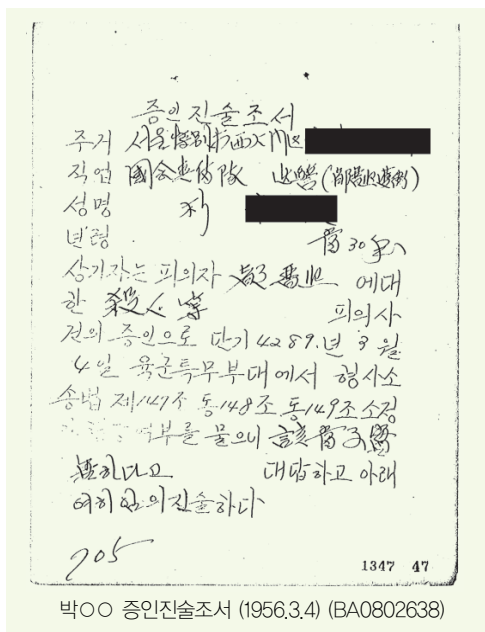 증인진술조서
주거 서울特別市西大門區
직업 國會警備隊
성명 朴
년령 當30年
상기자는 피의자 에대
한 殺人 피의사
건의 증인으로 단기4289.년 3월
4일 육군특무부대에서 형사소
송법 제147조 동148조 동149조소정
여부를 물으니 該當事項
無하다고 대답하고 아래
여히 임의진술하다
705
1347 47
박○○ 증인진술조서 (1956.3.4) (BA0802638)